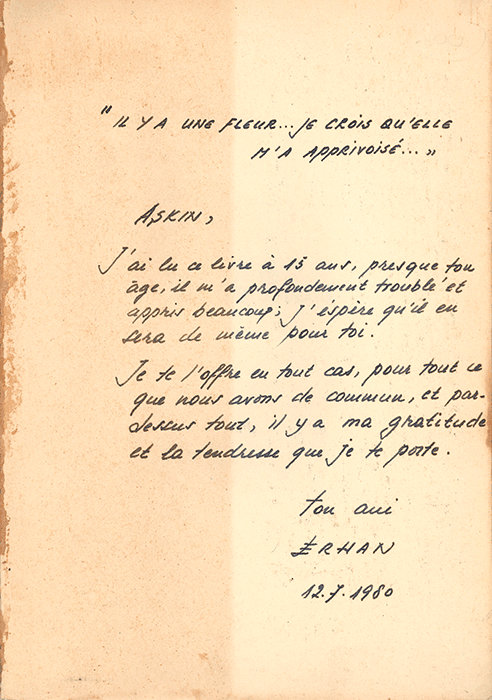 "IL Y A UNE FLEUR... JE CROIS QU'ELLE
M'A APPRIVOISÉ..."
ASKIN,
J'ai lu ce livre à 15 ans, presque ton
âge, il m'a profondement troublé et
appris beaucoup; J'éspère qu'il en
sera de même pour toi.
Je te l'offre en tout cas, pour tout ce
que nous avons de commun, et par-
dessus tout, il y a ma gratitude
et la tendresse que je te porte.
ton ami
ERHAN
12.7.1980